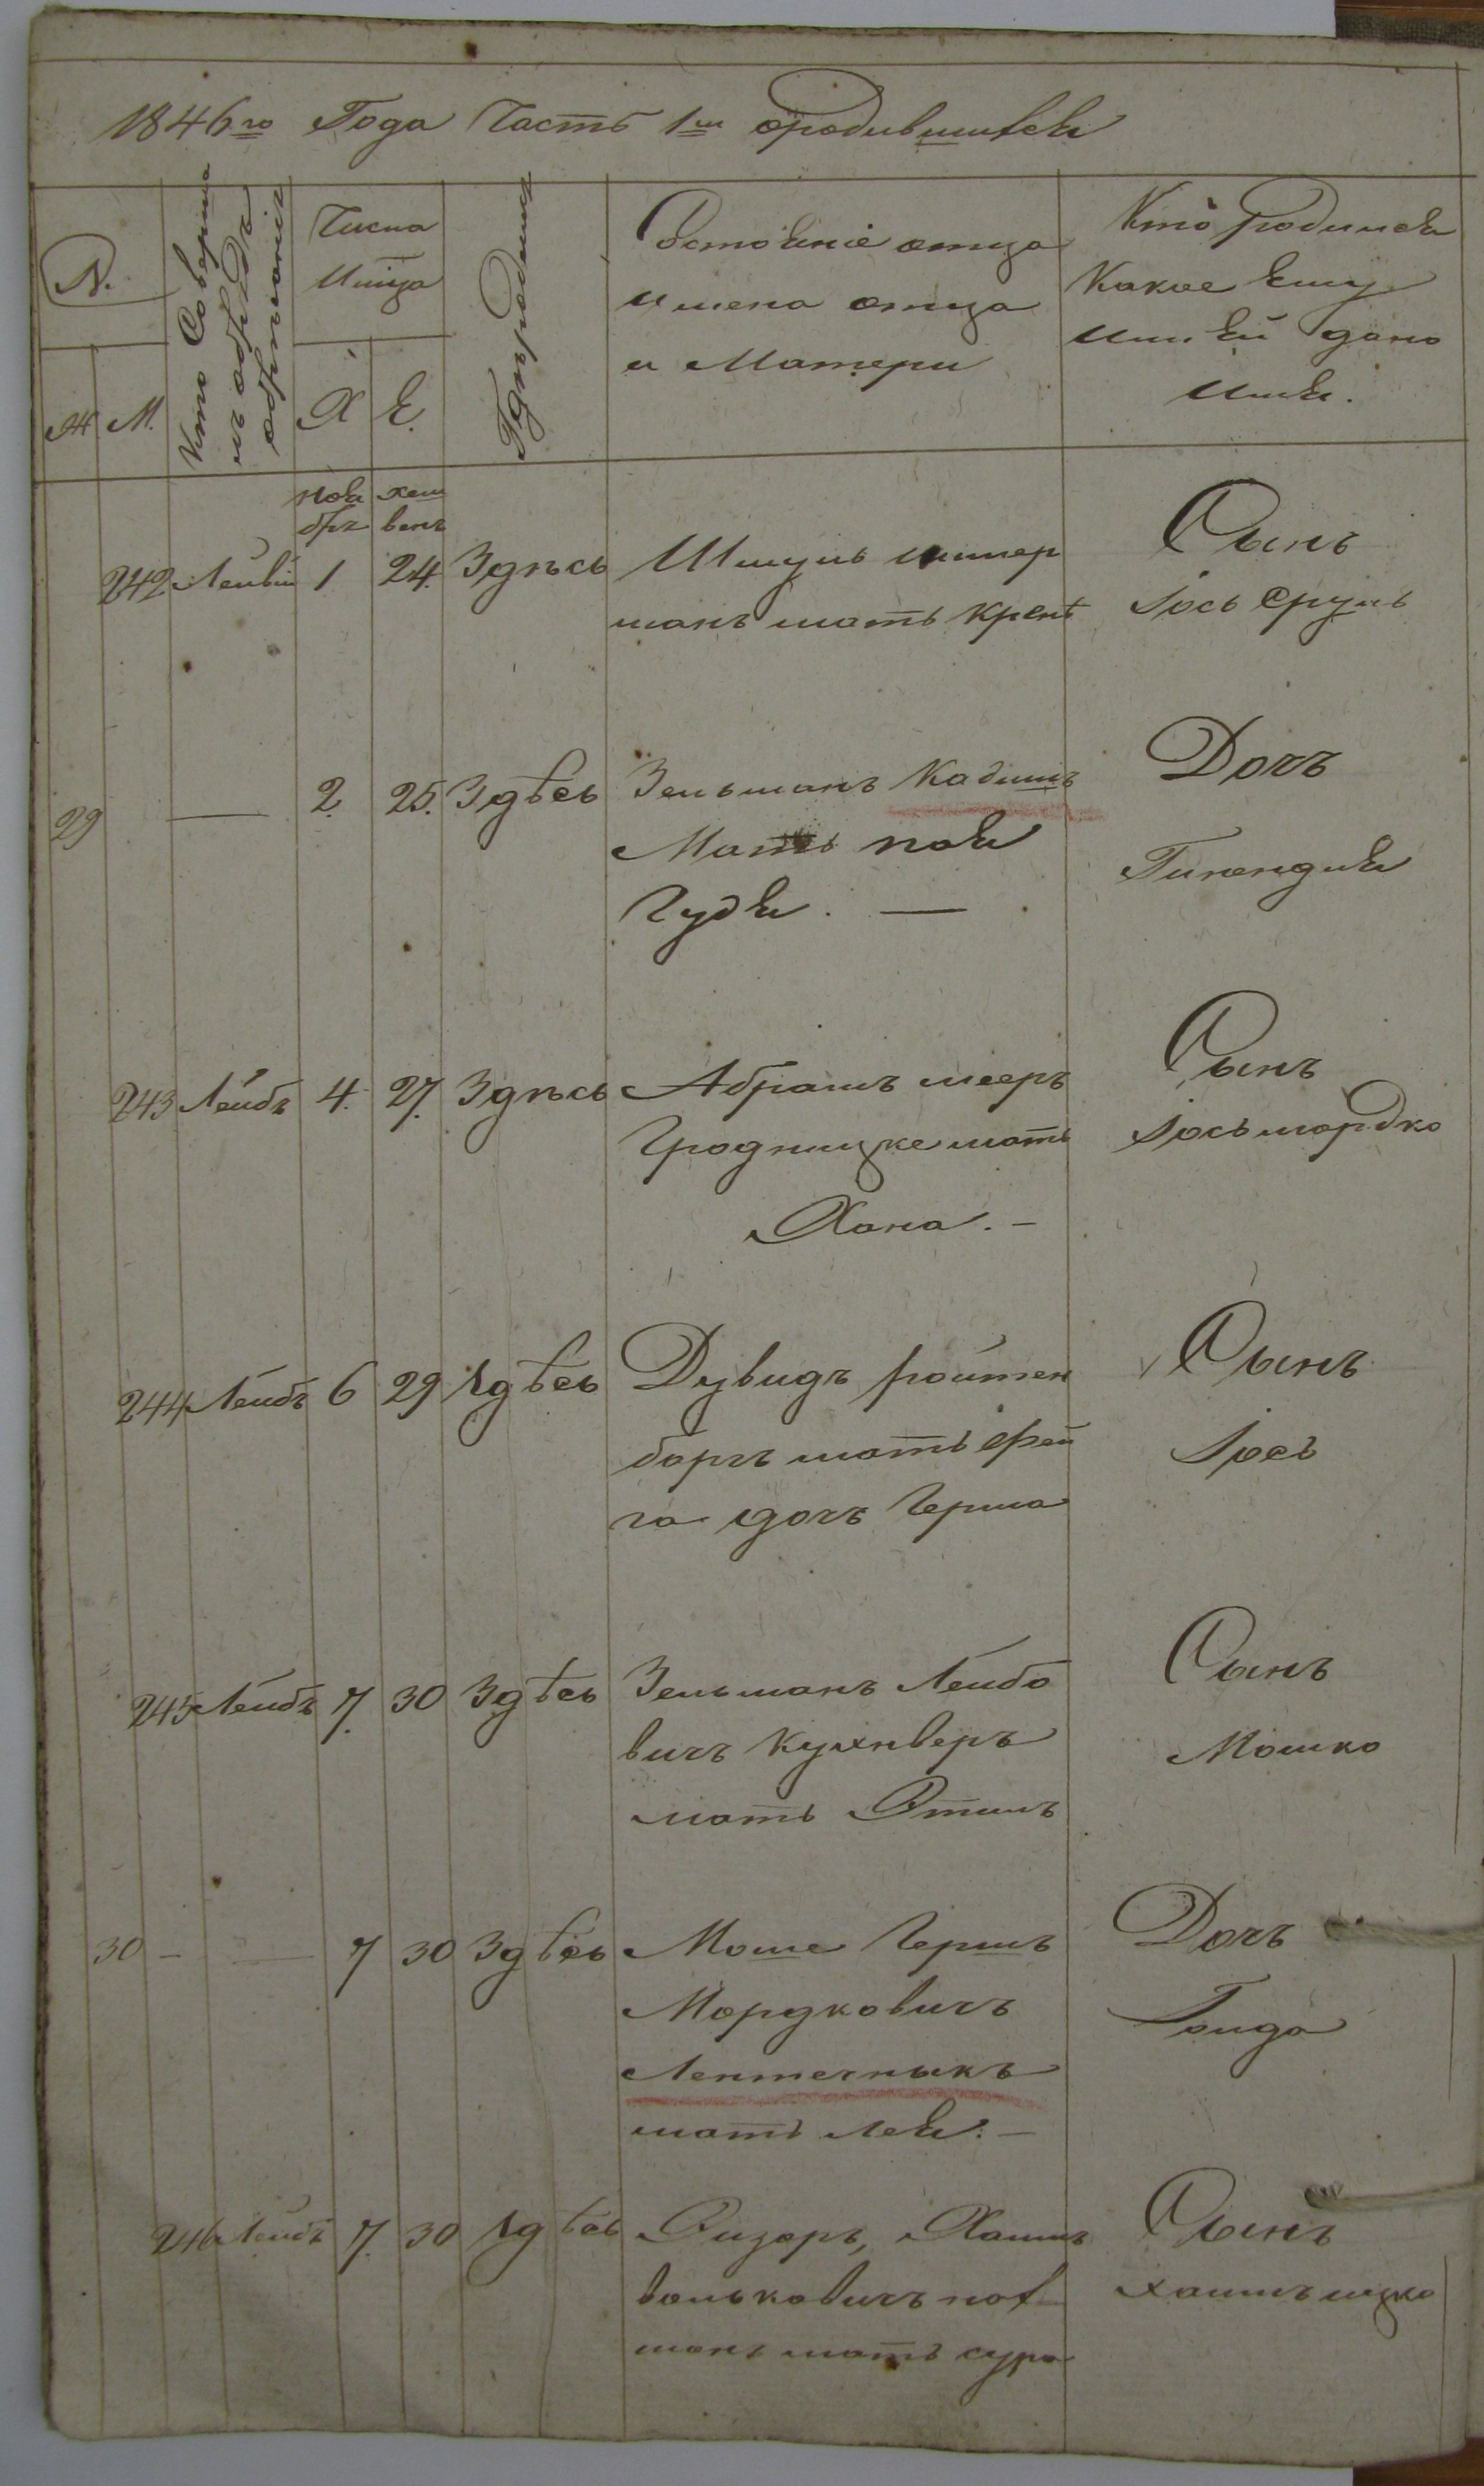 1846го Года Часть 1ш ородившихся
N.
Ж М.
Кто Соверша
лъ обрядъ
обрѣзанія
Числа
Мѣца
Х Е.
Гдѣ родился
Состояніе отца
имена отца
и Матери
Кто родился
Какое ему
или ей дано
имя.
ноя хеш
брь венъ
242 1 24. Здѣсь Шмуль
манъ мать Крепѣ
Сынъ
Iось Срулъ
29 — 2. 25. Здѣсь Зельманъ Кадишъ
Мать ноя
Гудя. —
Дочъ
243 Лейбъ 4. 27. Здѣсь Абрамъ мееръ
Гродницке мать
Хана. -
Сынъ
Iосьмордко
244 Лейбъ 6 29 Здѣсь Дувидъ ройтен
боргъ мать фей
га дочъ Герша
Сынъ
Iось
245 Лейбъ 7. 30 Здѣсь Зельманъ Лейбо
вичъ
мать Этиль
Сынъ
Мошко
30 - — 7 30 Здѣсь Моше Гершъ
Мордковичъ
Лептечныкъ
мать Лея. -
Дочъ
246 Лейбъ 7. 30 Здѣсь Эизоръ, Хаимъ
вольковичъ
манъ мать сура
Сынъ
хаимъ ицко